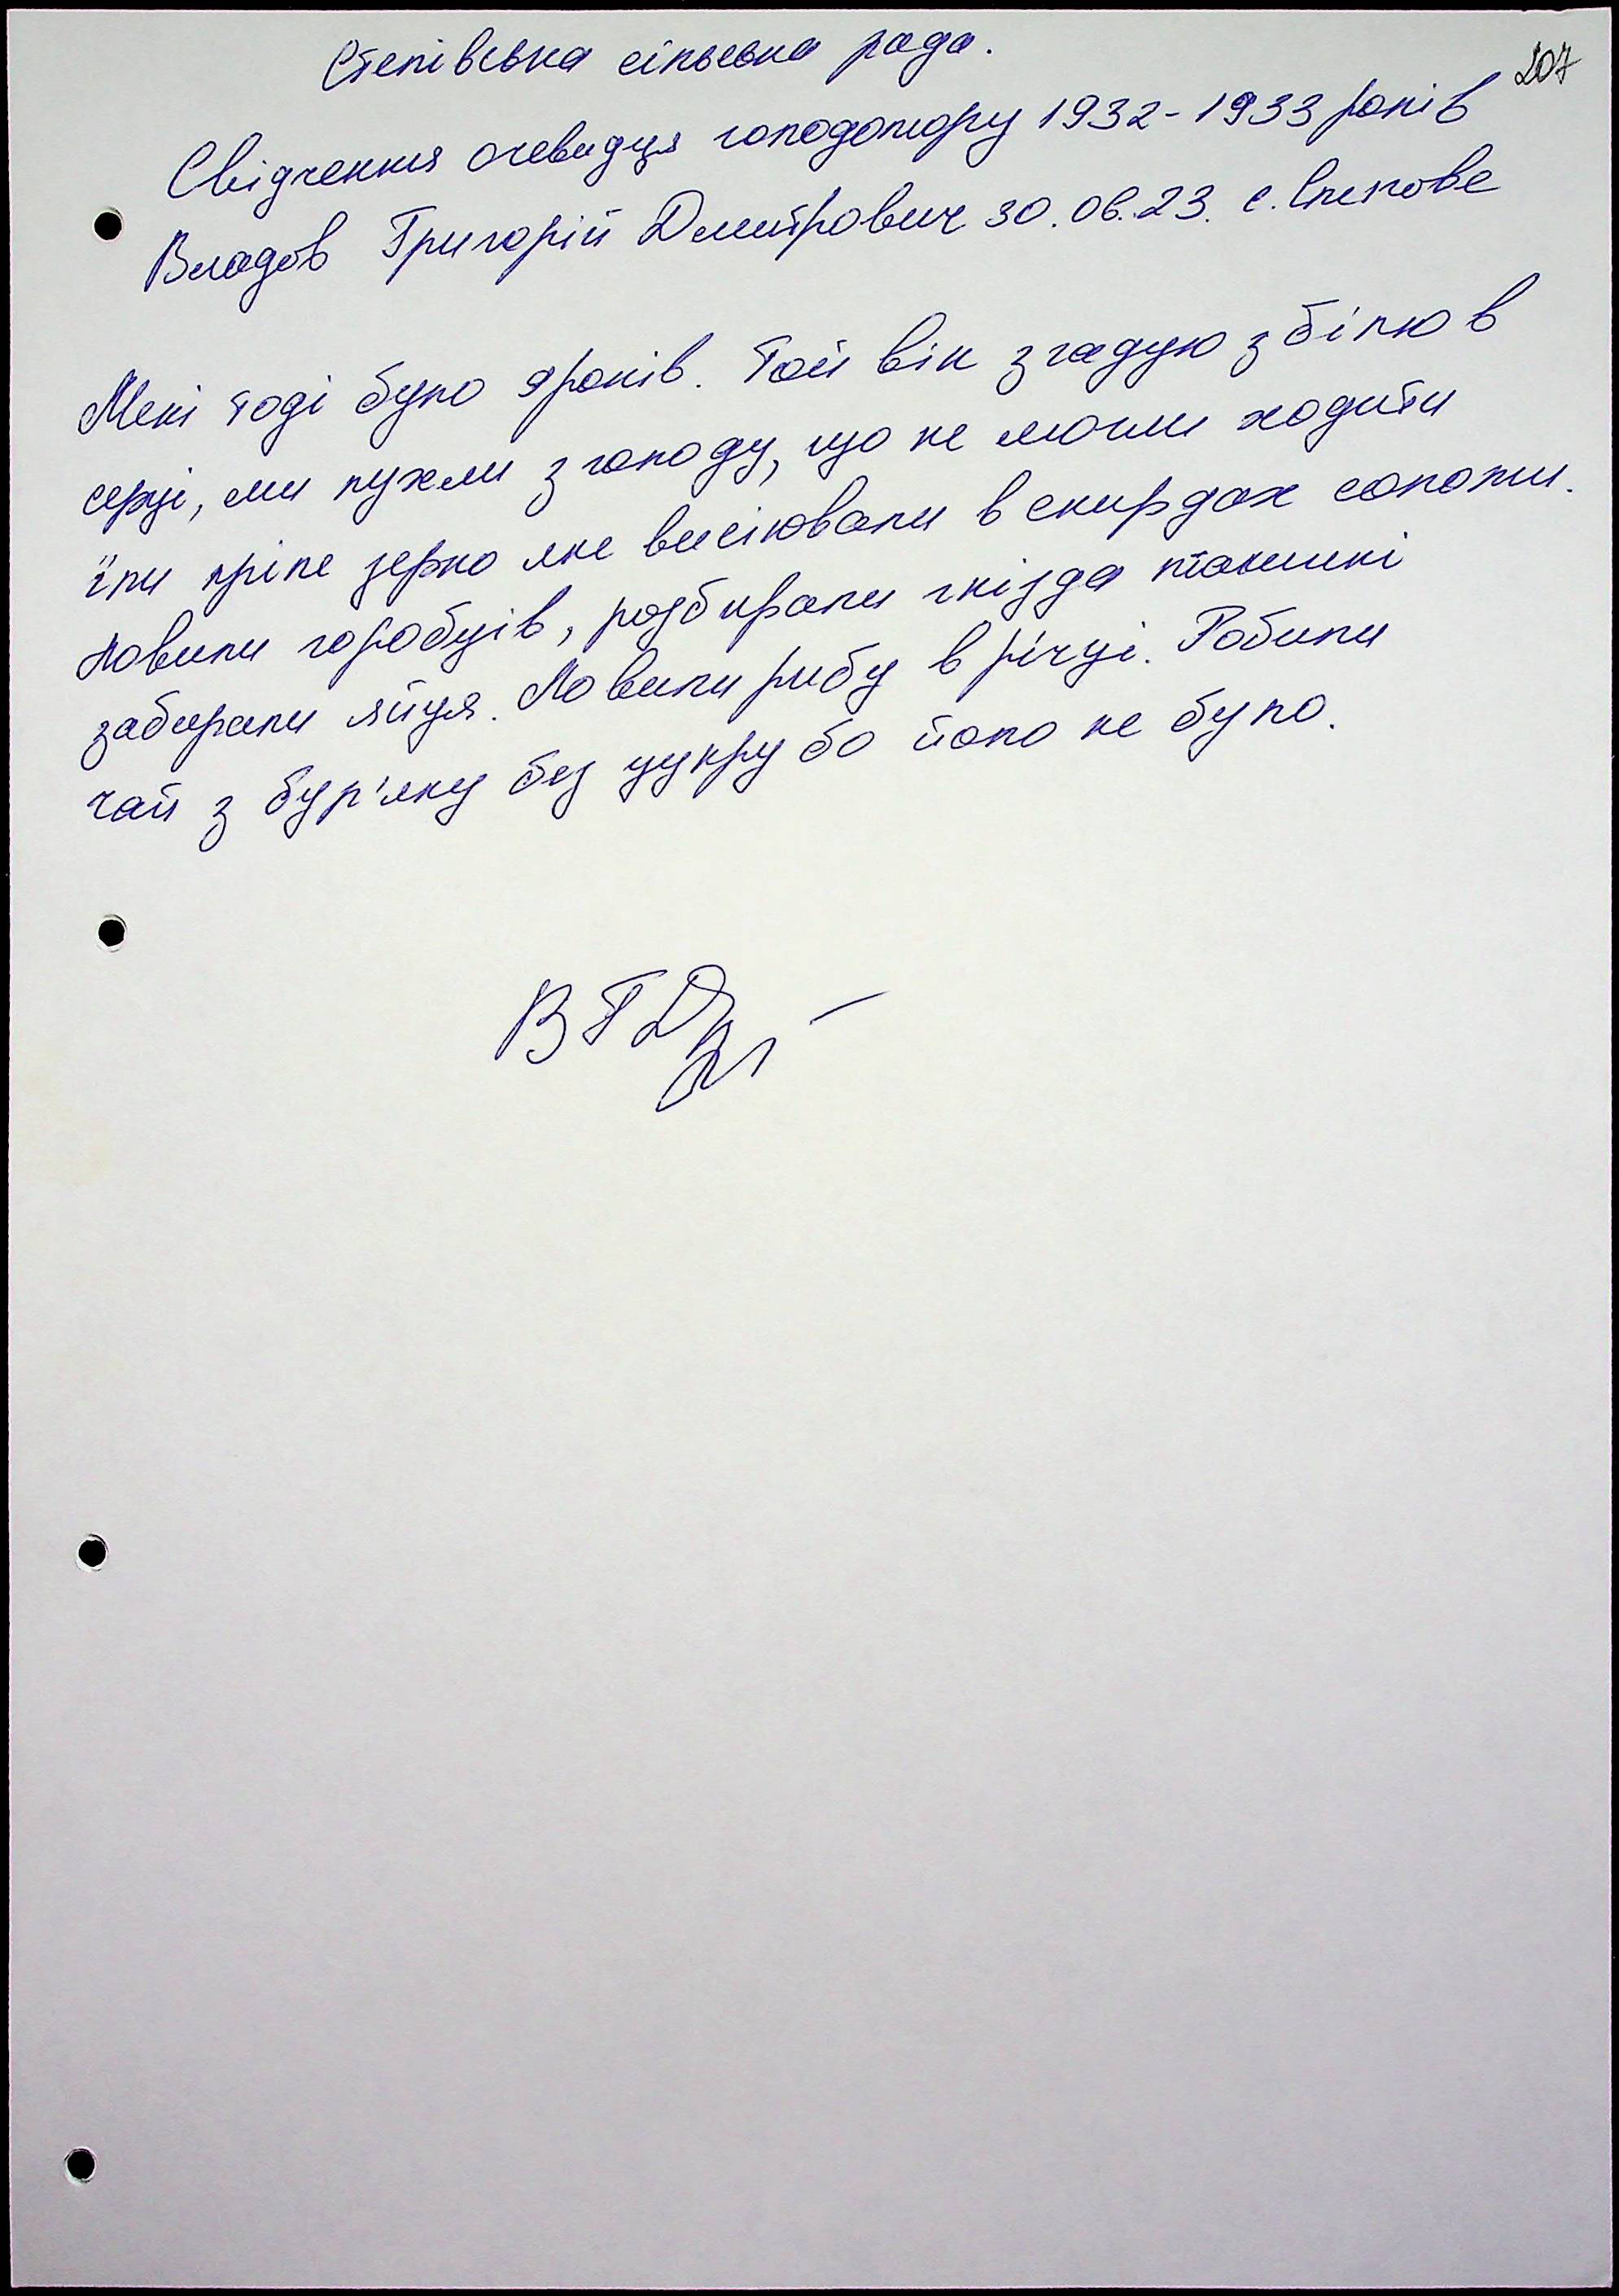 207
Степівська сільська рада.
Свідчення очевидця голодомору 1932-1933 років
Владов Григорій Дмитрович 30.06.23. с.
Мені тоді було 9 років. Той вік згадую з білю в
серці, ми пухли з голоду, що не могли ходити
їли пріле зерно яке висіювали в скирдах соломи.
Ловили горобців, розбирали гнізда пташині
забирали яйця. Ловили рибу в річці. Робили
чай з бур'яку без цукру бо його не було.
ВГД